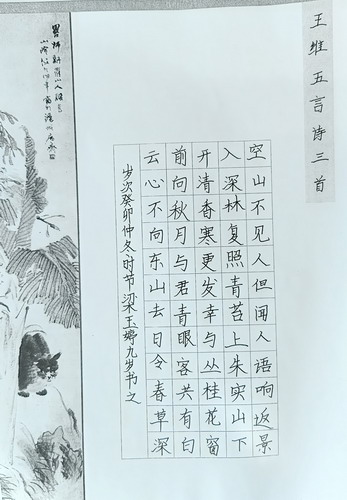 王维五言诗三首
空山不见人但闻人语响返景
入深林复照青苔上朱实山下
开清香寒更发幸与丛桂花窗
前向秋月与君青眼客共有白
云心不向东山去日令春草深
岁次癸卯仲冬时节梁玉婷九岁书之